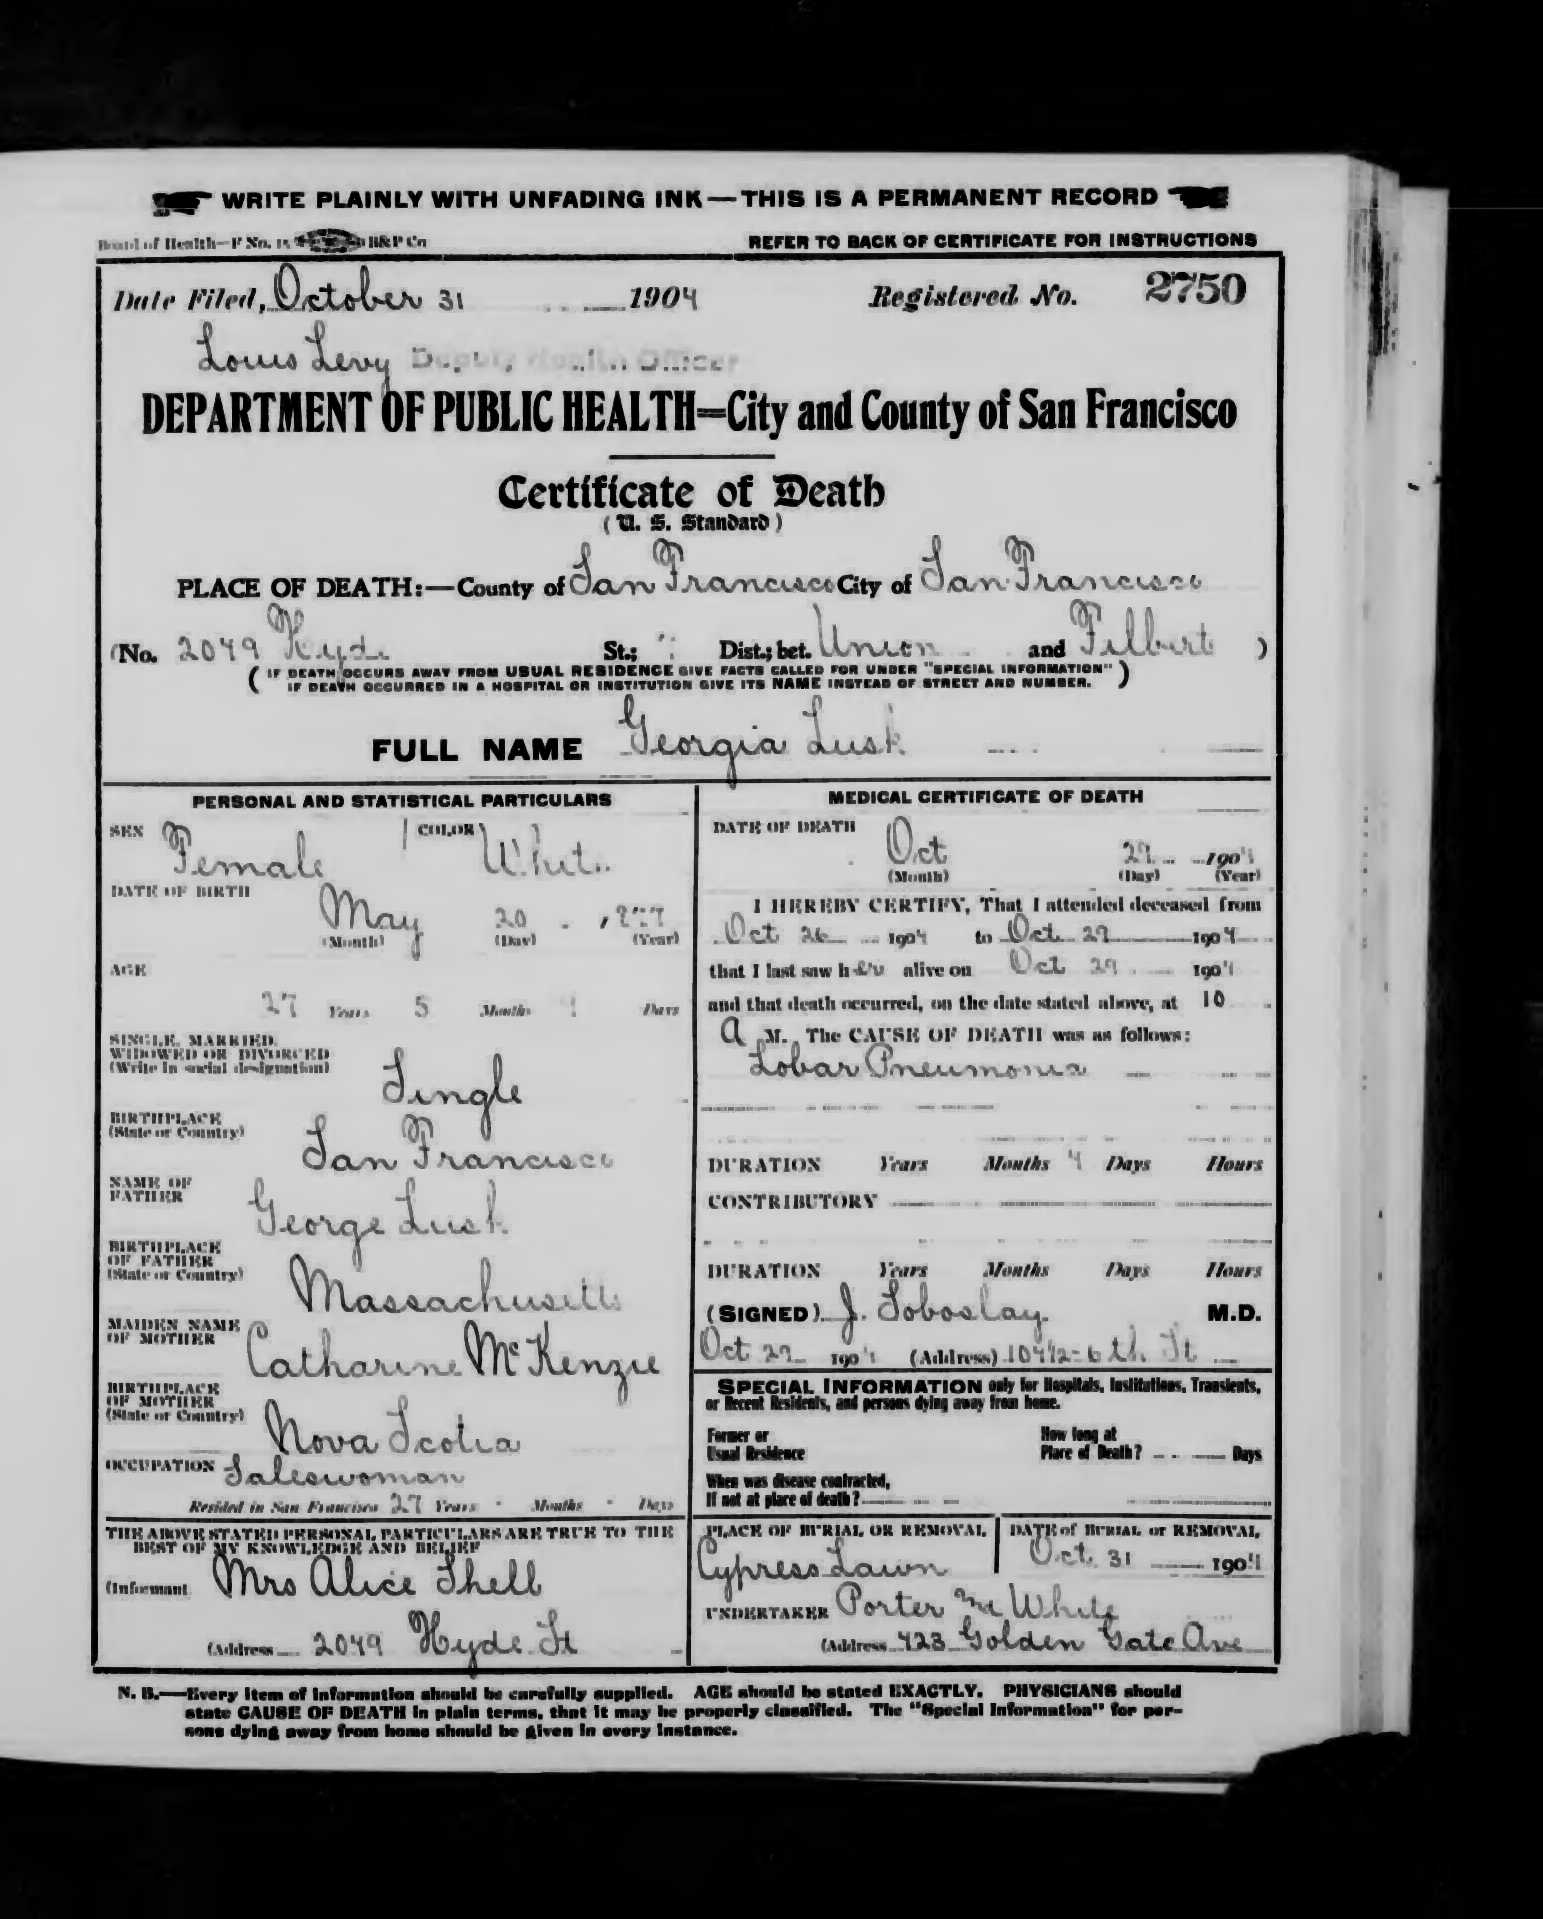 WRITE PLAINLY WITH UNFADING INK—THIS IS A PERMANENT RECORD
Board of Health—F No. 15 B&P Co
REFER TO BACK OF CERTIFICATE FOR INSTRUCTIONS
Date Filed, October 31 1904 Registered No. 2750
Louis Levy Deputy Health Officer
DEPARTMENT OF PUBLIC HEALTH=City and County of San Francisco
Certificate of Death
(U. S. Standard)
PLACE OF DEATH:—County of San Francisco City of San Francisco
(No. 2049 Hyde St.; Dist.; bet. Union and Filbert )
( IF DEATH OCCURS AWAY FROM USUAL RESIDENCE GIVE FACTS CALLED FOR UNDER "SPECIAL INFORMATION" )
IF DEATH OCCURRED IN A HOSPITAL OR INSTITUTION GIVE ITS NAME INSTEAD OF STREET AND NUMBER.
FULL NAME Georgia Lusk
PERSONAL AND STATISTICAL PARTICULARS
SEX Female COLOR White
DATE OF BIRTH May 20 1877
(Month) (Day) (Year)
AGE
27 Years 5 Months Days
SINGLE, MARRIED,
WIDOWED OR DIVORCED
(Write in social designation) Single
BIRTHPLACE
(State or Country) San Francisco
NAME OF
FATHER George Lusk
BIRTHPLACE
OF FATHER
(State or Country) Massachusetts
MAIDEN NAME
OF MOTHER Catharine McKenzie
BIRTHPLACE
OF MOTHER
(State or Country) Nova Scotia
OCCUPATION Saleswoman
Resided in San Francisco 27 Years - Months - Days
THE ABOVE STATED PERSONAL PARTICULARS ARE TRUE TO THE
BEST OF MY KNOWLEDGE AND BELIEF
(Informant Mrs Alice Shell
(Address 2049 Hyde St
MEDICAL CERTIFICATE OF DEATH
DATE OF DEATH Oct 29 1904
(Month) (Day) (Year)
I HEREBY CERTIFY, That I attended deceased from
Oct 26 1904 to Oct 29 1904
that I last saw her alive on Oct 29 1904
and that death occurred, on the date stated above, at 10
A M. The CAUSE OF DEATH was as follows:
Lobar Pneumonia
DURATION Years Months 4 Days Hours
CONTRIBUTORY
DURATION Years Months Days Hours
(SIGNED) J. Soboslay M.D.
Oct 29 1904 (Address) 104½-6th St
SPECIAL INFORMATION only for Hospitals, Institutions, Transients,
or Recent Residents, and persons dying away from home.
Former or
Usual Residence
How long at
Place of Death? Days
When was disease contracted,
If not at place of death?
PLACE OF BURIAL OR REMOVAL
Cypress Lawn
DATE of BURIAL or REMOVAL
Oct 31 1904
UNDERTAKER Porter and White
(Address 423 Golden Gate Ave
N. B.—Every item of information should be carefully supplied. AGE should be stated EXACTLY. PHYSICIANS should
state CAUSE OF DEATH in plain terms, that it may be properly classified. The "Special Information" for per-
sons dying away from home should be given in every instance.